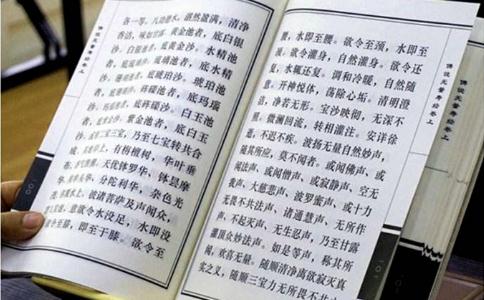 各一等。八功德水，湛然盈满，清净
香洁，味如甘露。黄金池者，底白银
沙。白银池者，底黄金沙。水精池
者，底琉璃沙。琉璃池者，底水精
沙。珊瑚池者，底琥珀沙。琥珀池
者，底珊瑚沙。砗磲池者，底玛瑙
沙。玛瑙池者，底砗磲沙。白玉池
者，底紫金沙。紫金池者，底白玉
沙。或二宝三宝，乃至七宝转共合
成。其池岸上，有栴檀树，华叶垂
布，香气普熏。天优钵罗华、钵昙摩
华、拘物头华、分陀利华，杂色光
茂，弥覆水上。彼诸菩萨及声闻众，
若入宝池，意欲令水没足，水即没
足。欲令至膝，即至于膝。欲令至
腰，水即至腰。欲令至颈，水即至
颈。欲令灌身，自然灌身。欲令还
复，水辄还复。调和冷暖，自然随
意。开神悦体，荡除心垢。清明澄
洁，净若无形。宝沙映彻，无深不
照。微澜回流，转相灌注。安详徐
逝，不迟不疾。波扬无量自然妙声，
随其所应，莫不闻者。或闻佛声、或
闻法声、或闻僧声、或寂静声、空无
我声、大慈悲声、波罗蜜声、或十力
无畏不共法声、诸通慧声、无所作
声、不起灭声、无生忍声、乃至甘露
灌顶众妙法声。如是等声，称其所
闻，欢喜无量。随顺清净离欲寂灭真
实之义，随顺三宝力无所畏不共之
佛说无量寿经卷上
佛说无量寿经卷上